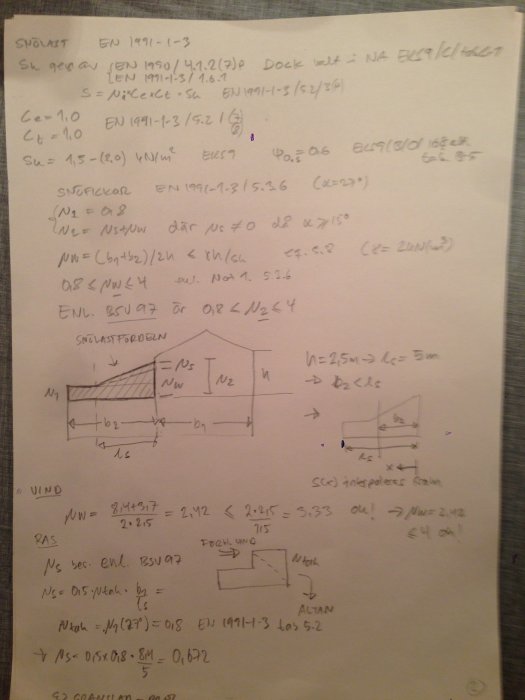 SNÖLAST EN 1991-1-3
Sk ges av {EN 1990/4.1.2(7)P Dock valt i NA EKS9/C/
EN 1991-1-3/1.6.1
S = μi·Ce·Ct·Sk EN 1991-1-3/5.2/3
Ce=1,0
Ct=1,0 EN 1991-1-3/5.2/(7)
(8)
Sk = 1,5-(2,0) kN/m² EKS9 ψ0,s=0,6 EKS9
SNÖFICKOR EN 1991-1-3/5.3.6 (α=27°)
{μ1 = 0,8
μ2 = μs+μw där μs≠0 då α ≥ 15°
μw = (b1+b2)/2h ≤ γh/sk eq. 5.8 (γ = 2kN/m³)
0,8 ≤ μw ≤ 4 enl. Not 1. 5.3.6
ENL. BSV 97 är 0,8 ≤ μ2 ≤ 4
SNÖLASTFÖRDELN
μ1 μs μw μ2 h
b2 b1
ls
h=2,5m → ls = 5m
→ b2 < ls
→
b2
ls
x
S(x) interpoleras fram
VIND
μw = 8,4+3,7/2·2,5 = 2,42 ≤ 2·2,5/1,5 = 3,33 ok! → μw=2,42
≤ 4 ok!
RAS
μs ber. enl. BSV 97
μs = 0,5·μtak·b1/ls =
μtak = μ1(27°) = 0,8 EN 1991-1-3 tab 5.2
→ μs = 0,5x0,8·8,4/5 = 0,672
μtak
ALTAN